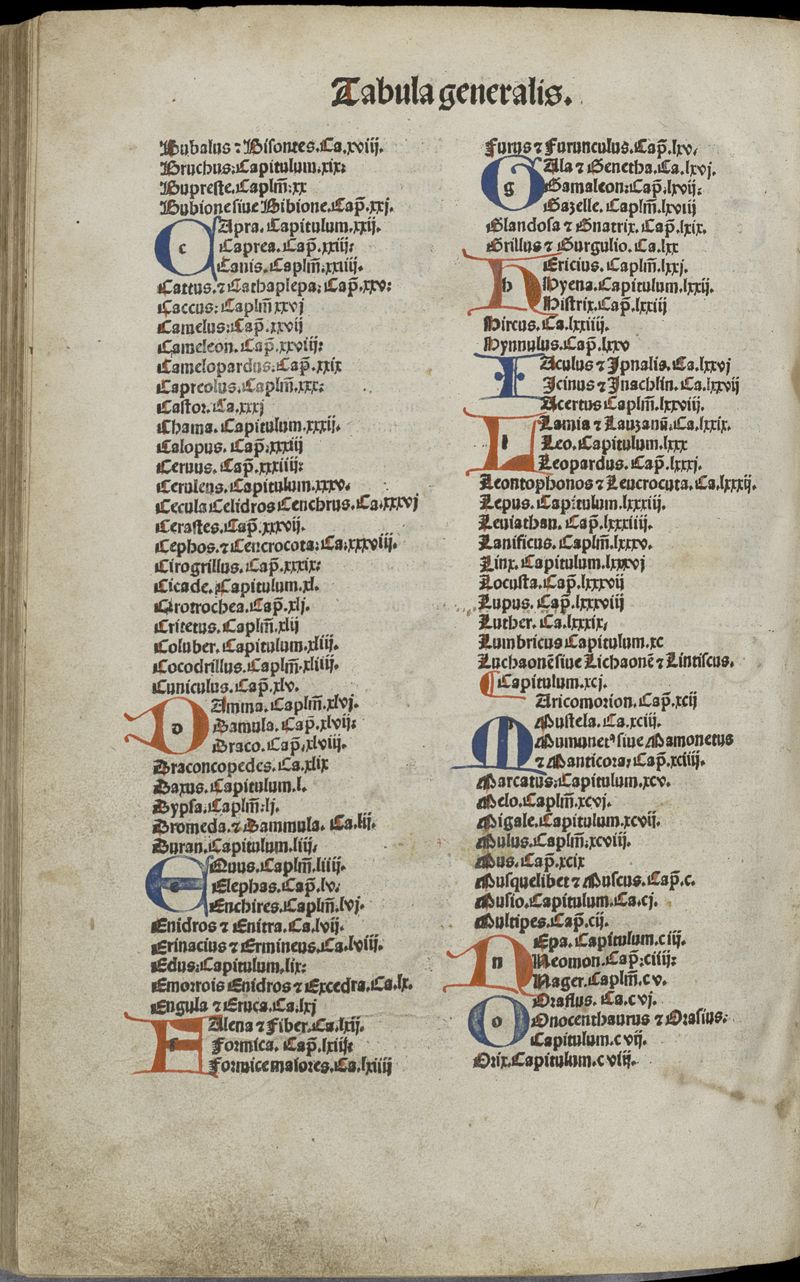 Tabula generalis.
Bubalus ⁊ Bisontes. Ca. xviij.
Bruchus: Capitulum. xix:
Bupreste. Caplm̄: xx
Bubione siue Bibione. Cap̄. xxj.
Apra. Capitulum. xxij.
c Caprea. Cap̄. xxiij:
Canis. Caplm̄: xxiiij.
Cattus. ⁊ Cathaplepa: Cap̄. xxv:
Caccus: Caplm̄ xxvj
Camelus: Cap̄. xxvij
Cameleon. Cap̄. xxviij:
Camelopardus: Cap̄. xxix
Capreolus. Caplm̄. xxx:
Castor. Ca. xxxj
Chama. Capitulum. xxxij.
Calopus. Cap̄: xxxiij
Ceruus. Cap̄. xxxiiij:
Ceruleus. Capitulum. xxxv.
Cecula Celidros Cenchrus. Ca. xxxvj
Cerastes. Cap̄. xxxvij.
Cephos. ⁊ Cencrocota: Ca: xxxviij.
Cirogrillus. Cap̄. xxxix:
Cicade. Capitulum. xl.
Crotrochea. Cap̄. xlj.
Critetus. Caplm̄. xlij
Coluber. Capitulum. xliij.
Cocodrillus. Caplm̄. xliiij.
Cuniculus. Cap̄. xlv.
Amma. Caplm̄. xlvj.
D Damula. Cap̄. xlvij:
Draco. Cap̄. xlviij.
Draconcopedes. Ca. xlix
Daxus. Capitulum. l.
Dypsa: Caplm̄: lj.
Dromeda. ⁊ Dammula. Ca. lij.
Duran. Capitulum. liij.
Quus. Caplm̄. liiij.
e Elephas. Cap̄. lv.
Enchires. Caplm̄. lvj.
Enidros ⁊ Enitra. Ca. lvij.
Erinacius ⁊ Ermineus. Ca. lviij.
Edus: Capitulum. lix:
Emorrois Enidros ⁊ Excedra. Ca. lx.
Engula ⁊ Eruca. Ca. lxj
Alena ⁊ Fiber. Ca. lxij.
f Formica. Cap̄. lxiij:
Formice maiores. Ca. lxiiij
Furus ⁊ Furunculus. Cap̄. lxv.
Ala ⁊ Genetha. Ca. lxvj.
g Gamaleon: Cap̄. lxvij:
Gazelle. Caplm̄. lxviij
Glandosa ⁊ Gnatrix. Cap̄. lxix.
Grillus ⁊ Gurgulio. Ca. lxx
Ericius. Caplm̄. lxxj.
h Hyena. Capitulum. lxxij.
Histrix. Cap̄. lxxiij
Hircus. Ca. lxxiiij.
Hynnulus. Cap̄. lxxv
Aculus ⁊ Ipnalis. Ca. lxxvj
Icinus ⁊ Inachlin. Ca. lxxvij
Acertus Caplm̄. lxxviij.
Lamia ⁊ Lauzanū: Ca. lxxix.
l Leo. Capitulum. lxxx
Leopardus. Cap̄. lxxxj.
Leontophonos ⁊ Leucrocuta. Ca. lxxxij.
Lepus. Capitulum. lxxxiij.
Leuiathan. Cap̄. lxxxiiij.
Lanificus. Caplm̄. lxxxv.
Linx. Capitulum. lxxxvj
Locusta. Cap̄. lxxxvij
Lupus. Cap̄. lxxxviij
Luther. Ca. lxxxix.
Lumbricus Capitulum. xc
Luchaonē siue Lichaonē ⁊ Lintiscus.
¶ Capitulum. xcj.
Aricomorion. Cap̄. xcij
Mustela. Ca. xciij.
Mumonetꝰ siue Mamonetus
⁊ Manticora: Cap̄. xciiij.
Marcatus: Capitulum. xcv.
Melo. Caplm̄. xcvj.
Migale. Capitulum. xcvij.
Mulus. Caplm̄: xcviij.
Mus. Cap̄. xcix
Musquelibet ⁊ Muscus. Cap̄. c.
Musio. Capitulum. Ca. cj.
Multipes. Cap̄. cij.
Epa. Capitulum. c iij.
n Neomon. Cap̄: ciiij:
Nager. Caplm̄. c v.
Oraflus. Ca. c vj.
o Onocenthaurus ⁊ Orasius:
Capitulum. c vij.
Orix. Capitulum. c viij.